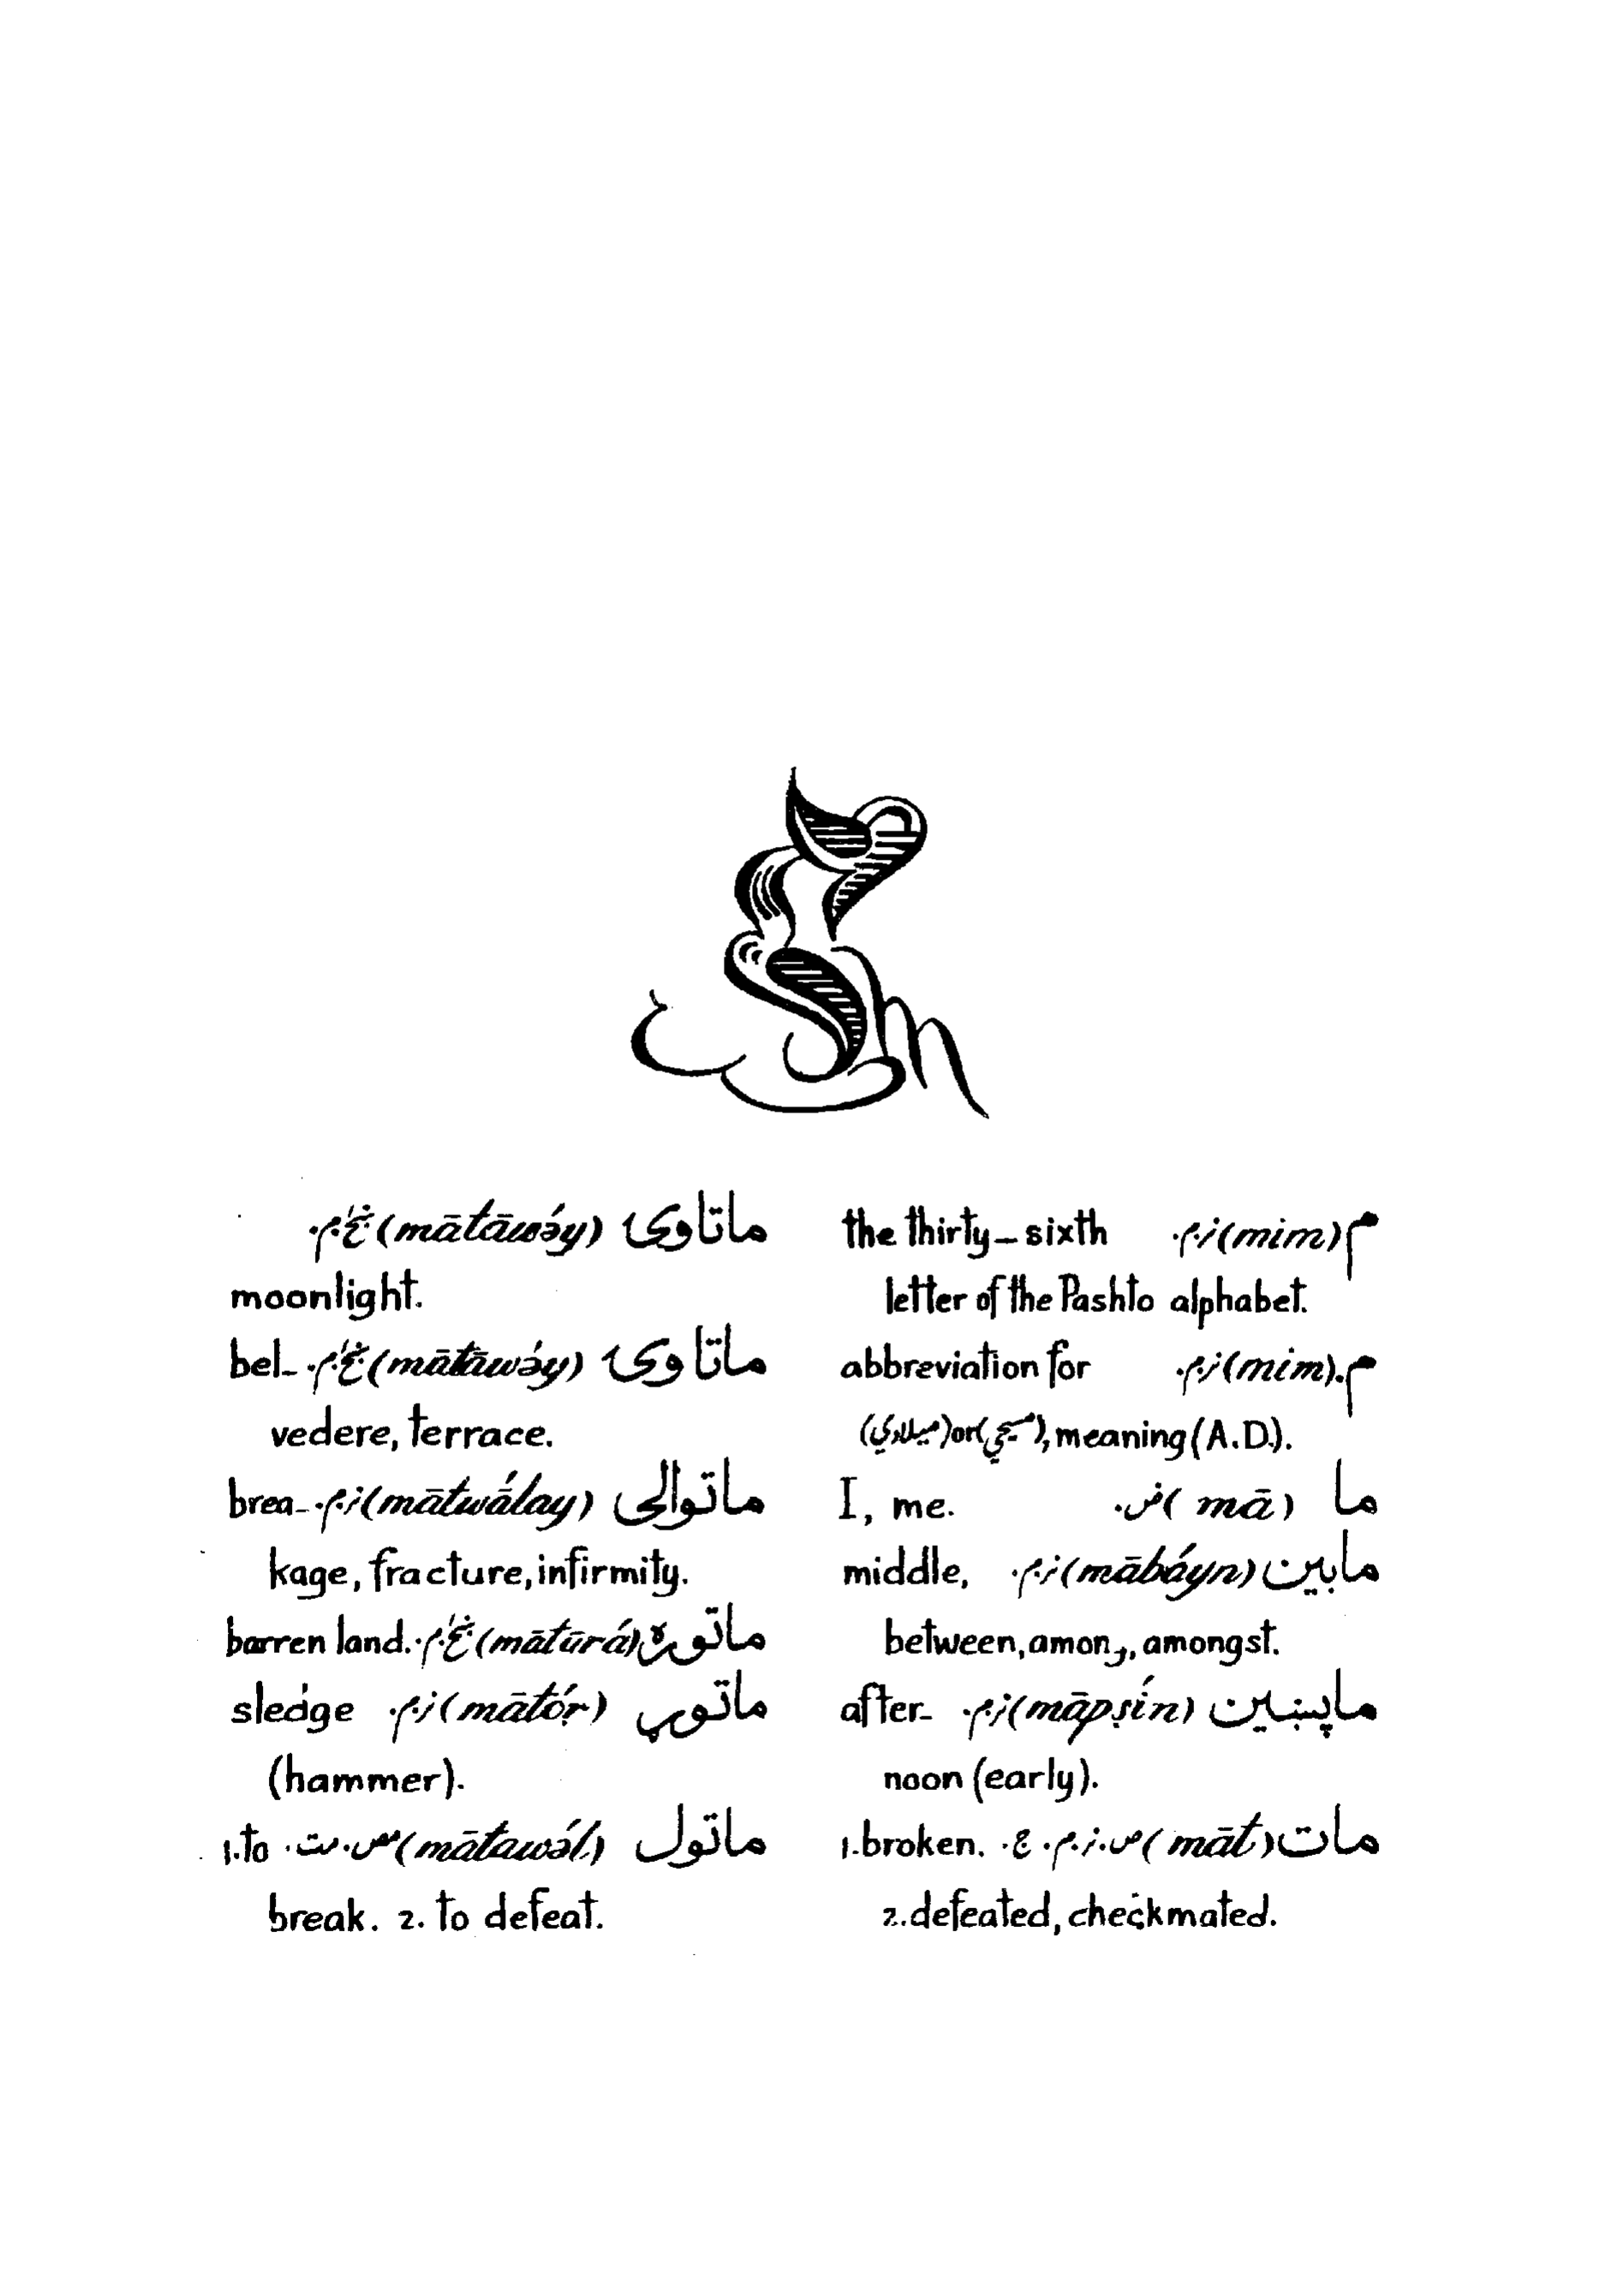 م (mim) ن.م. the thirty-sixth
letter of the Pashto alphabet.
م. (mim) ن.م. abbreviation for
(ميلادي) or (مسيحي), meaning (A.D.).
ما (mā) ض. I, me.
مابين (mābáyn) ن.م. middle,
between, among, amongst.
ماپښين (māpṣín) ن.م. after-
noon (early).
مات (māt) ص.ن.م.ع. 1. broken.
2. defeated, checkmated.
ماتاوۍ (mātāwә́y)
moonlight.
ماتاوۍ (mātāwә́y) bel-
vedere, terrace.
ماتوالی (mātwálay) ن.م. brea-
kage, fracture, infirmity.
ماتوره (mātūrá) barren land.
ماتوړ (mātóṛ) ن.م. sledge
(hammer).
ماتول (mātawә́l) 1. to
break. 2. to defeat.